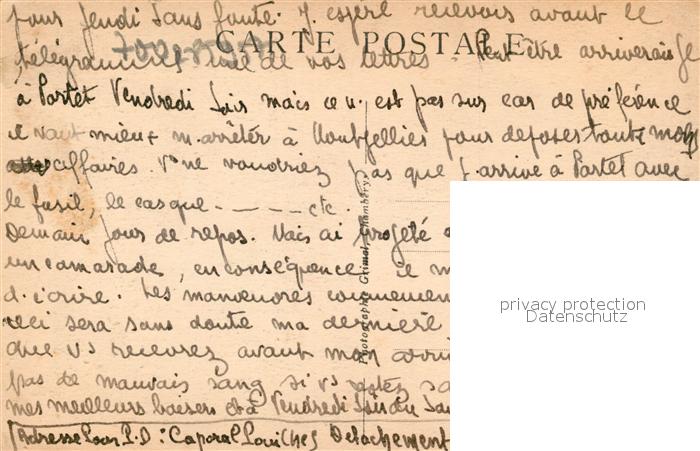 pour Jeudi sans faute. J. espère recevoir avant le
CARTE POSTALE
télégramme de vos lettres. Peut être arriverais Je
à Portet Vendredi soir mais ce n. est pas sur car de préférence
il vaut mieux m. arrêter à Montpellier pour déposer toute mon
affaires. Vs ne voudriez pas que j. arrive à Portet avec
le fusil, le casque - _ _ _ _ etc.
Demain jour de repos. Mais ai projeté
un camarade, en conséquence je m
d. écrire. Les manoeuvres commencent
ceci sera sans doute ma dernière
que Vs recevrez avant mon arri
pas de mauvais sang si Vs
mes meilleurs baisers et à Vendredi soir ou Sa
Adresse Caporal Détachement
Photographie Grimal, Chambéry
privacy protection
Datenschutz